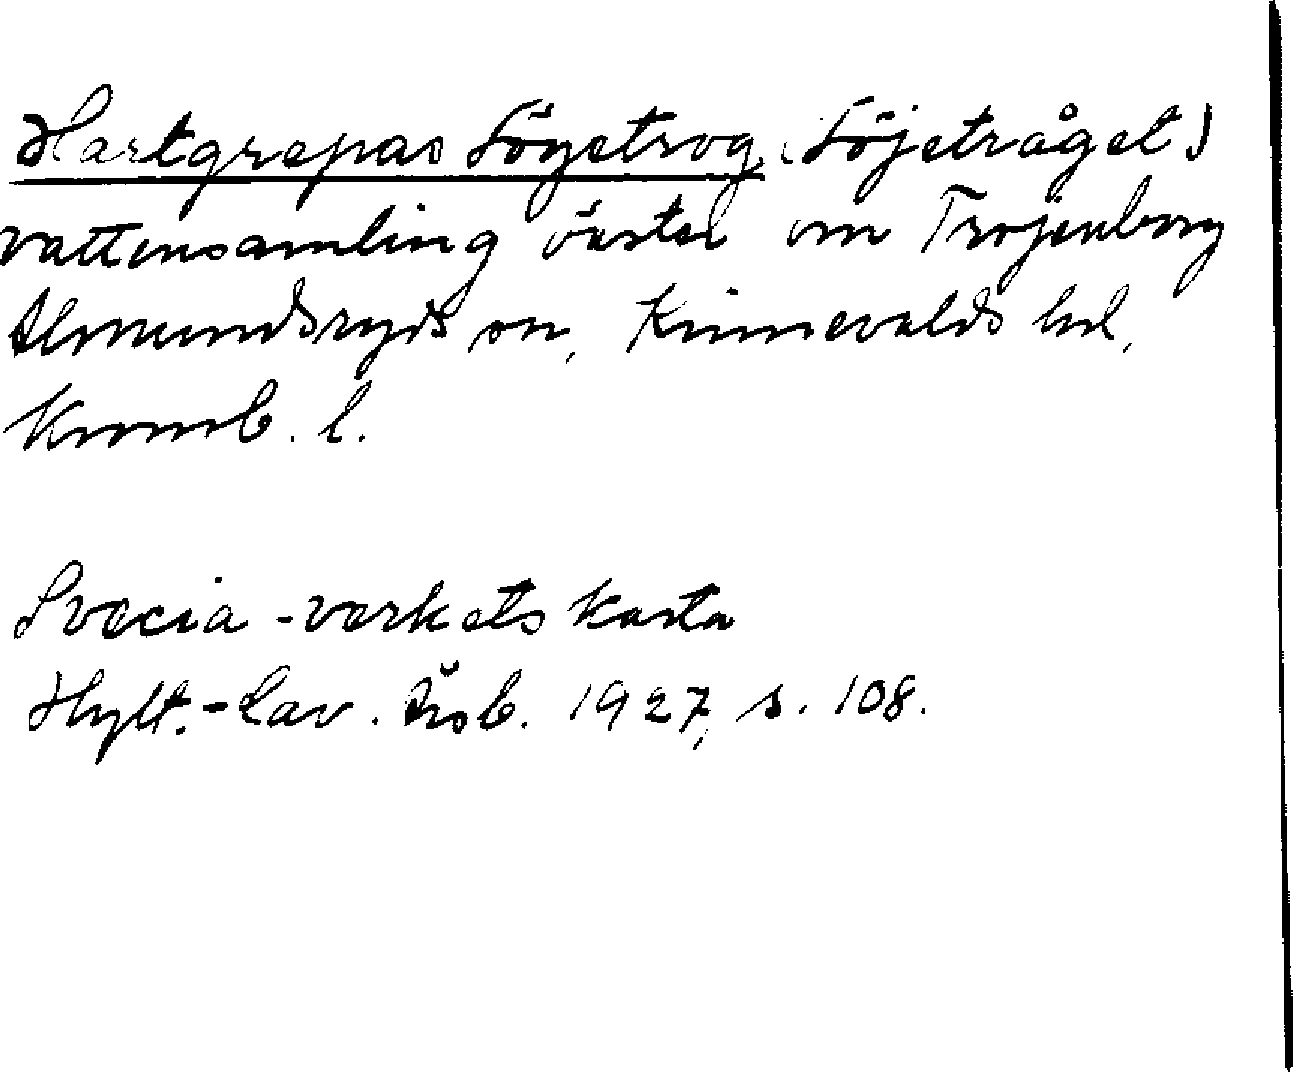 Hartgrepas Sögetrog (Söjetråget)
vattensamling öster om Trojenborg
Almundsryds sn, Kinnevalds hd,
Kronob. l.
Svecia-verkets karta
Hylt.-Cav. Årsb. 1927, s. 108.